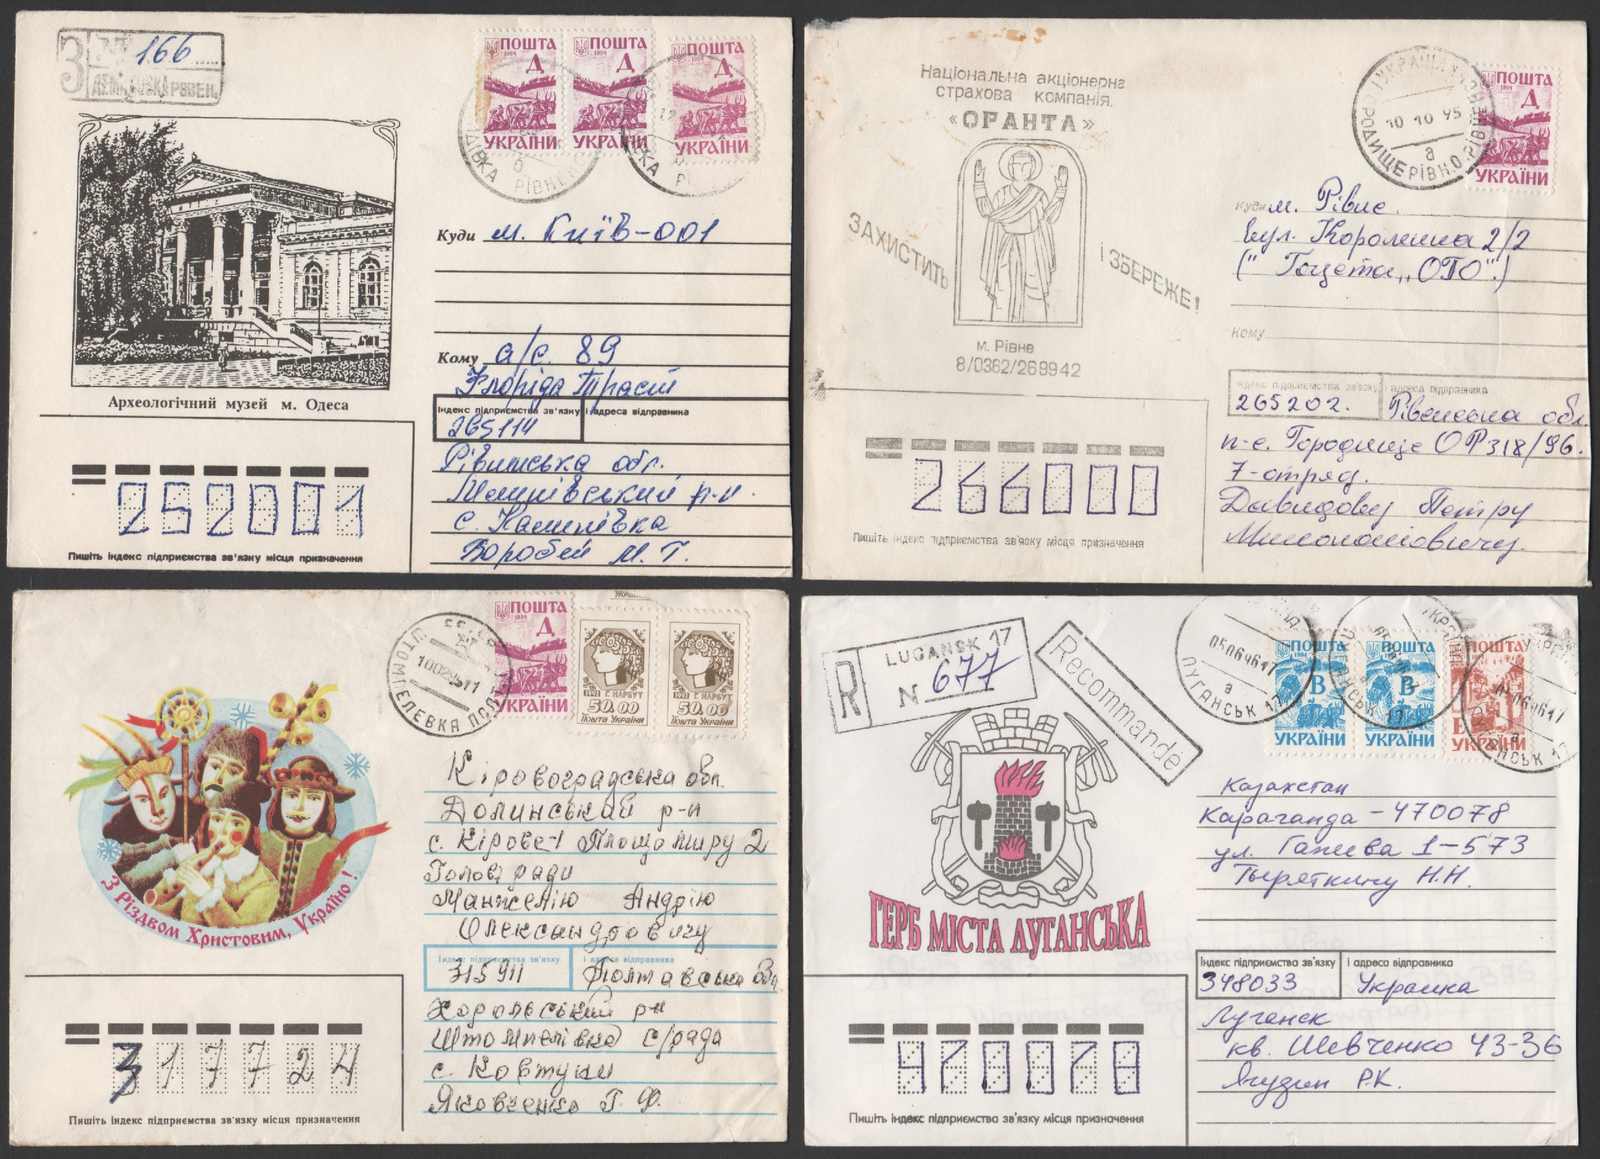 З № 166
РІВЕН.
ПОШТА ПОШТА ПОШТА
1994 Д 1994 Д Д
УКРАЇНИ УКРАЇНИ УКРАЇНИ
РІВНЕН
Археологічний музей м. Одеса
Куди м. Київ-001
Кому а/с. 89
Флоріда Траст
Індекс підприємства зв'язку і адреса відправника
265114
Рівенська обл.
Млинівський р-н.
с.
Воробей М. Г.
252001
Пишіть індекс підприємства зв'язку місця призначення
Національна акціонерна
страхова компанія
«ОРАНТА»
ЗАХИСТИТЬ І ЗБЕРЕЖЕ!
м. Рівне
8/0362/269942
УКРАЇНА
10 10 95
а
ГОРОДИЩЕ РІВН.О.
ПОШТА
1994 Д
УКРАЇНИ
Куди м. Рівне
вул. Короленка 2/2
("Газета „ОТО".)
Кому
Індекс підприємства зв'язку і адреса відправника
265202. Рівненська обл.
п-є. Городище ОР318/96.
7-отряд.
Давидову Петру
266000
Пишіть індекс підприємства зв'язку місця призначення
ШТОМПЕЛЕВКА ПОЛТ
ПОШТА
1994 Д
УКРАЇНИ
1992 Г. НАРБУТ 1992 Г. НАРБУТ
50.00 50.00
Пошта України Пошта України
З Різдвом Христовим, Україно!
Кіровоградська обл.
Долинський р-н
с. Кірове-1 Площа миру 2
Голові ради
Манжелію Андрію
Олександровичу
Індекс підприємства зв'язку і адреса відправника
315911 Полтавська Обл.
Хорольський р-н
Штомпелівка с/рада
с. Ковтуни
Яковченко Г. Ф.
317724
Пишіть індекс підприємства зв'язку місця призначення
R LUGANSK 17
N 677
Recommandé
05.06.96.17
а
ЛУГАНСЬК 17
ПОШТА ПОШТА ПОШТА
В В
УКРАЇНИ УКРАЇНИ УКРАЇНИ
ГЕРБ МІСТА ЛУГАНСЬКА
Казахстан
Караганда - 470078
ул. Гапеева 1-573
Тыряткину Н.Н.
Індекс підприємства зв'язку і адреса відправника
348033 Украина
Луганск
кв. Шевченко 43-36
Ягудин Р.К.
470078
Пишіть індекс підприємства зв'язку місця призначення